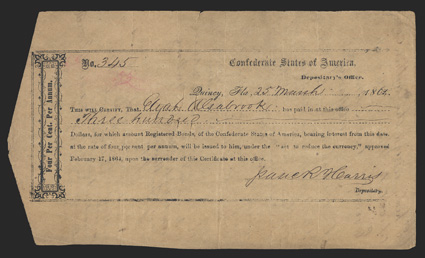 Four Per Cent. Per Annum.
No. 345
Confederate States of America.
Depositary's Office.
Quincy, Fla. 25 March 1864.
This will Certify, That, Seabrooke has paid in at this office
Three hundred
Dollars, for which amount Registered Bonds, of the Confederate States of America, bearing interest from this date
at the rate of four per cent per annum, will be issued to him, under the "act to reduce the currency," approved
February 17, 1864, upon the surrender of this Certificate at this office.
Harris
Depositary.